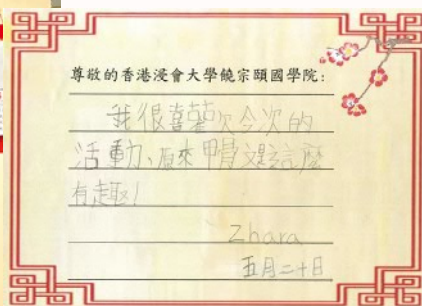 尊敬的香港浸會大學饒宗頤國學院:
我很喜歡次今次的
活動、原來甲骨文是這麼
有趣!
Zhara
五月二十日